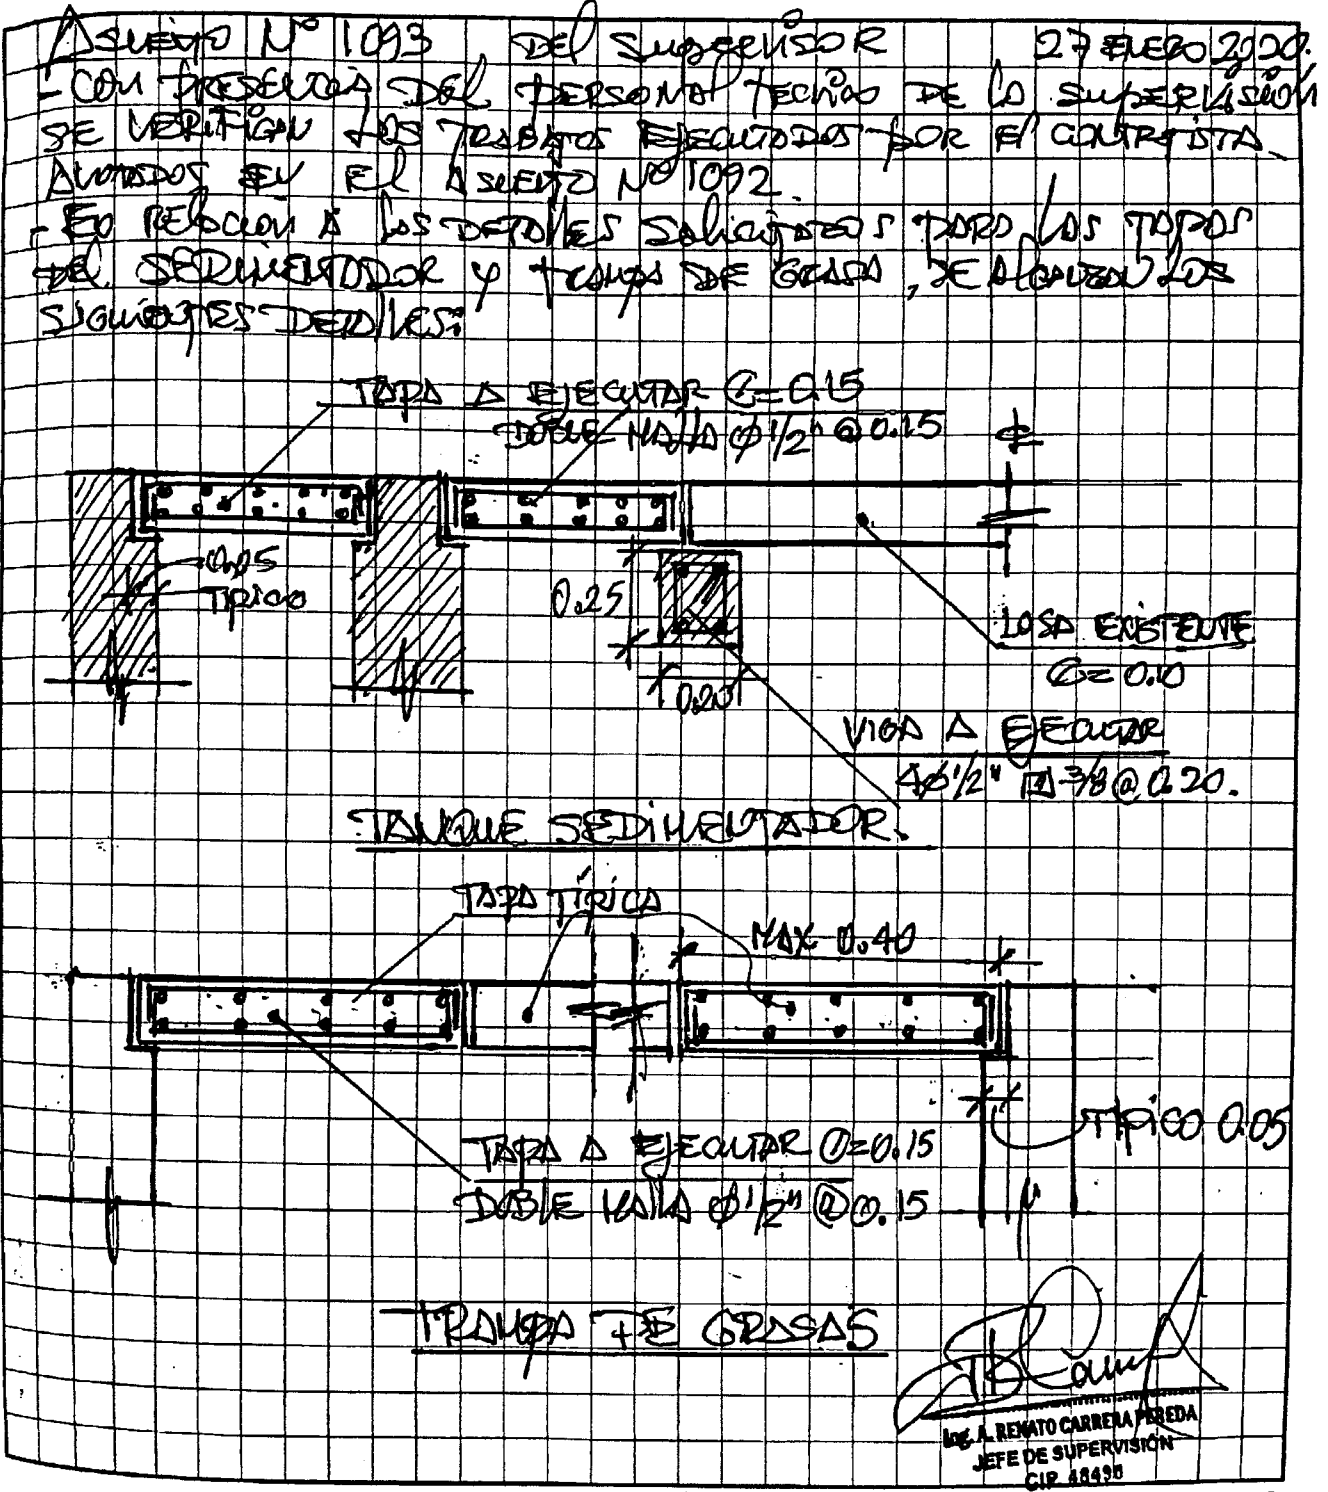 ASUENTO Nº 1093 DEL SUPERVISOR 27 ENERO 2020.
- CON PRESENCIA DEL PERSONAL TECNICO DE LA SUPERVISIÓN
SE VERIFICAN LOS TRABAJOS EJECUTADOS POR El CONTRATISTA
ANOTADOS EN El ASIENTO Nº 1092
- EN RELACION A LOS DETALLES SOLICITADOS PARA LAS TAPAS
DEL SEDIMENTADOR Y TRAMPA DE GRASA, SE ALCANZAN LOS
SIGUIENTES DETALLES:
TAPA A EJECUTAR e=0.15
DOBLE MALLA φ 1/2" @ 0.15
0.05
TIPICO
0.25
0.20
LOSA EXISTENTE
e= 0.10
VIGA A EJECUTAR
4φ 1/2" 3/8 @ 0.20.
TANQUE SEDIMENTADOR.
TAPA TÍPICA
MAX 0.40
TIPICO 0.05
TAPA A EJECUTAR e=0.15
DOBLE MALLA φ 1/2" @ 0.15
TRAMPA DE GRASAS
Ing. A. RENATO CARRERA PEREDA
JEFE DE SUPERVISIÓN
CIP. 48495